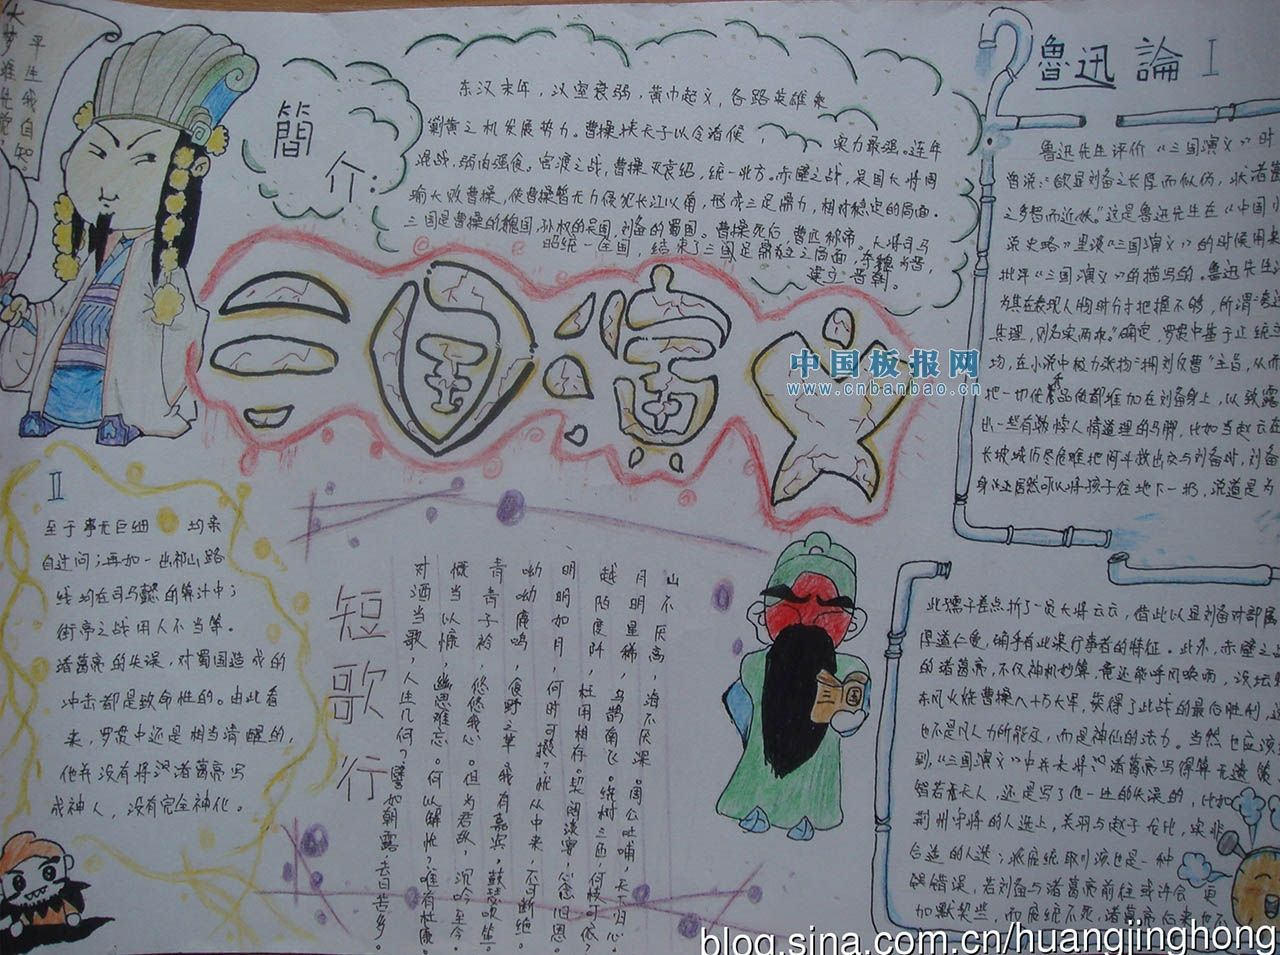 大梦谁先觉
平生我自知
簡介:
东汉末年，汉室衰弱，黄巾起义，各路英雄乘
剿黄之机发展势力。曹操挟天子以令诸侯，实力最强。连年
混战，弱肉强食。官渡之战，曹操灭袁绍，统一北方。赤壁之战，吴国大将周
瑜大败曹操，使曹操暂无力侵犯长江以南，形成三足鼎力，相对稳定的局面。
三国是曹操的魏国，孙权的吴国，刘备的蜀国。曹操死后，曹丕称帝。大将司马
昭统一全国，结束了三国足鼎立之局面，夺魏为晋，
建立晋朝。
三国演义
中国板报网
www.cnbanbao.cn
魯迅論 I
鲁迅先生评价“三国演义”时
曾说：“欲显刘备之长厚而似伪，状诸葛
之多智而近妖。”这是鲁迅先生在“中国小
说史略”里谈“三国演义”的时候用来
批评“三国演义”的描写的。鲁迅先生
为其在表现人物时分寸把握不够，所谓
失理，则名实两亏。”确定，罗贯中基于正统
均，在小说中极力张扬“拥刘反曹”主旨，从而
把一切优秀品质都堆加在刘备身上，以致露
出一些有勃惊人情道理的马脚，比如当赵云在
长坂坡历尽危难把阿斗救出交与刘备时，刘备
居然可以将孩子往地下一扔，说道是为
此孺子差点折了一员大将云云，借此以显刘备对部属
厚道仁爱，
的诸葛亮，不仅神机妙算，竟还能呼风唤雨，设坛
东风火烧曹操八十万大军，获得了此战的最后胜利，
也不是凡人力所能及，而是神仙的法力。当然也应该
到，“三国演义”中并未将诸葛亮写得算无遗策
智若天人，还是写了他一生的失误的，比如
荆州守将的人选上，关羽与赵子龙比，实非
合适的人选；派庞统取川该也是一种
错误，若刘备与诸葛亮前往或许会更
加默契些，而庞统不死，诸葛亮后来也不
II
至于事无巨细 均亲
自过问；再如一出祁山路
线均在司马懿的算计中；
街亭之战用人不当等。
诸葛亮的失误，对蜀国造成的
冲击都是致命性的。由此看
来，罗贯中还是相当清醒的，
他并没有将诸葛亮写
成神人，没有完全神化。
短歌行
对酒当歌，人生几何？譬如朝露，去日苦多。
慨当以慷，幽思难忘。何以解忧？唯有杜康
青青子衿，悠悠我心。但为君故，沉吟至今。
呦呦鹿鸣，食野之苹，我有嘉宾，鼓瑟吹笙。
明明如月，何时可掇？忧从中来，不可断绝。
越陌度阡，枉用相存。契阔谈宴，心念旧恩。
月明星稀，乌鹊南飞。绕树三匝，何枝可依？
山不厌高，海不厌深。周公吐哺，天下归心。
三国
blog.sina.com.cn/huangjinghong